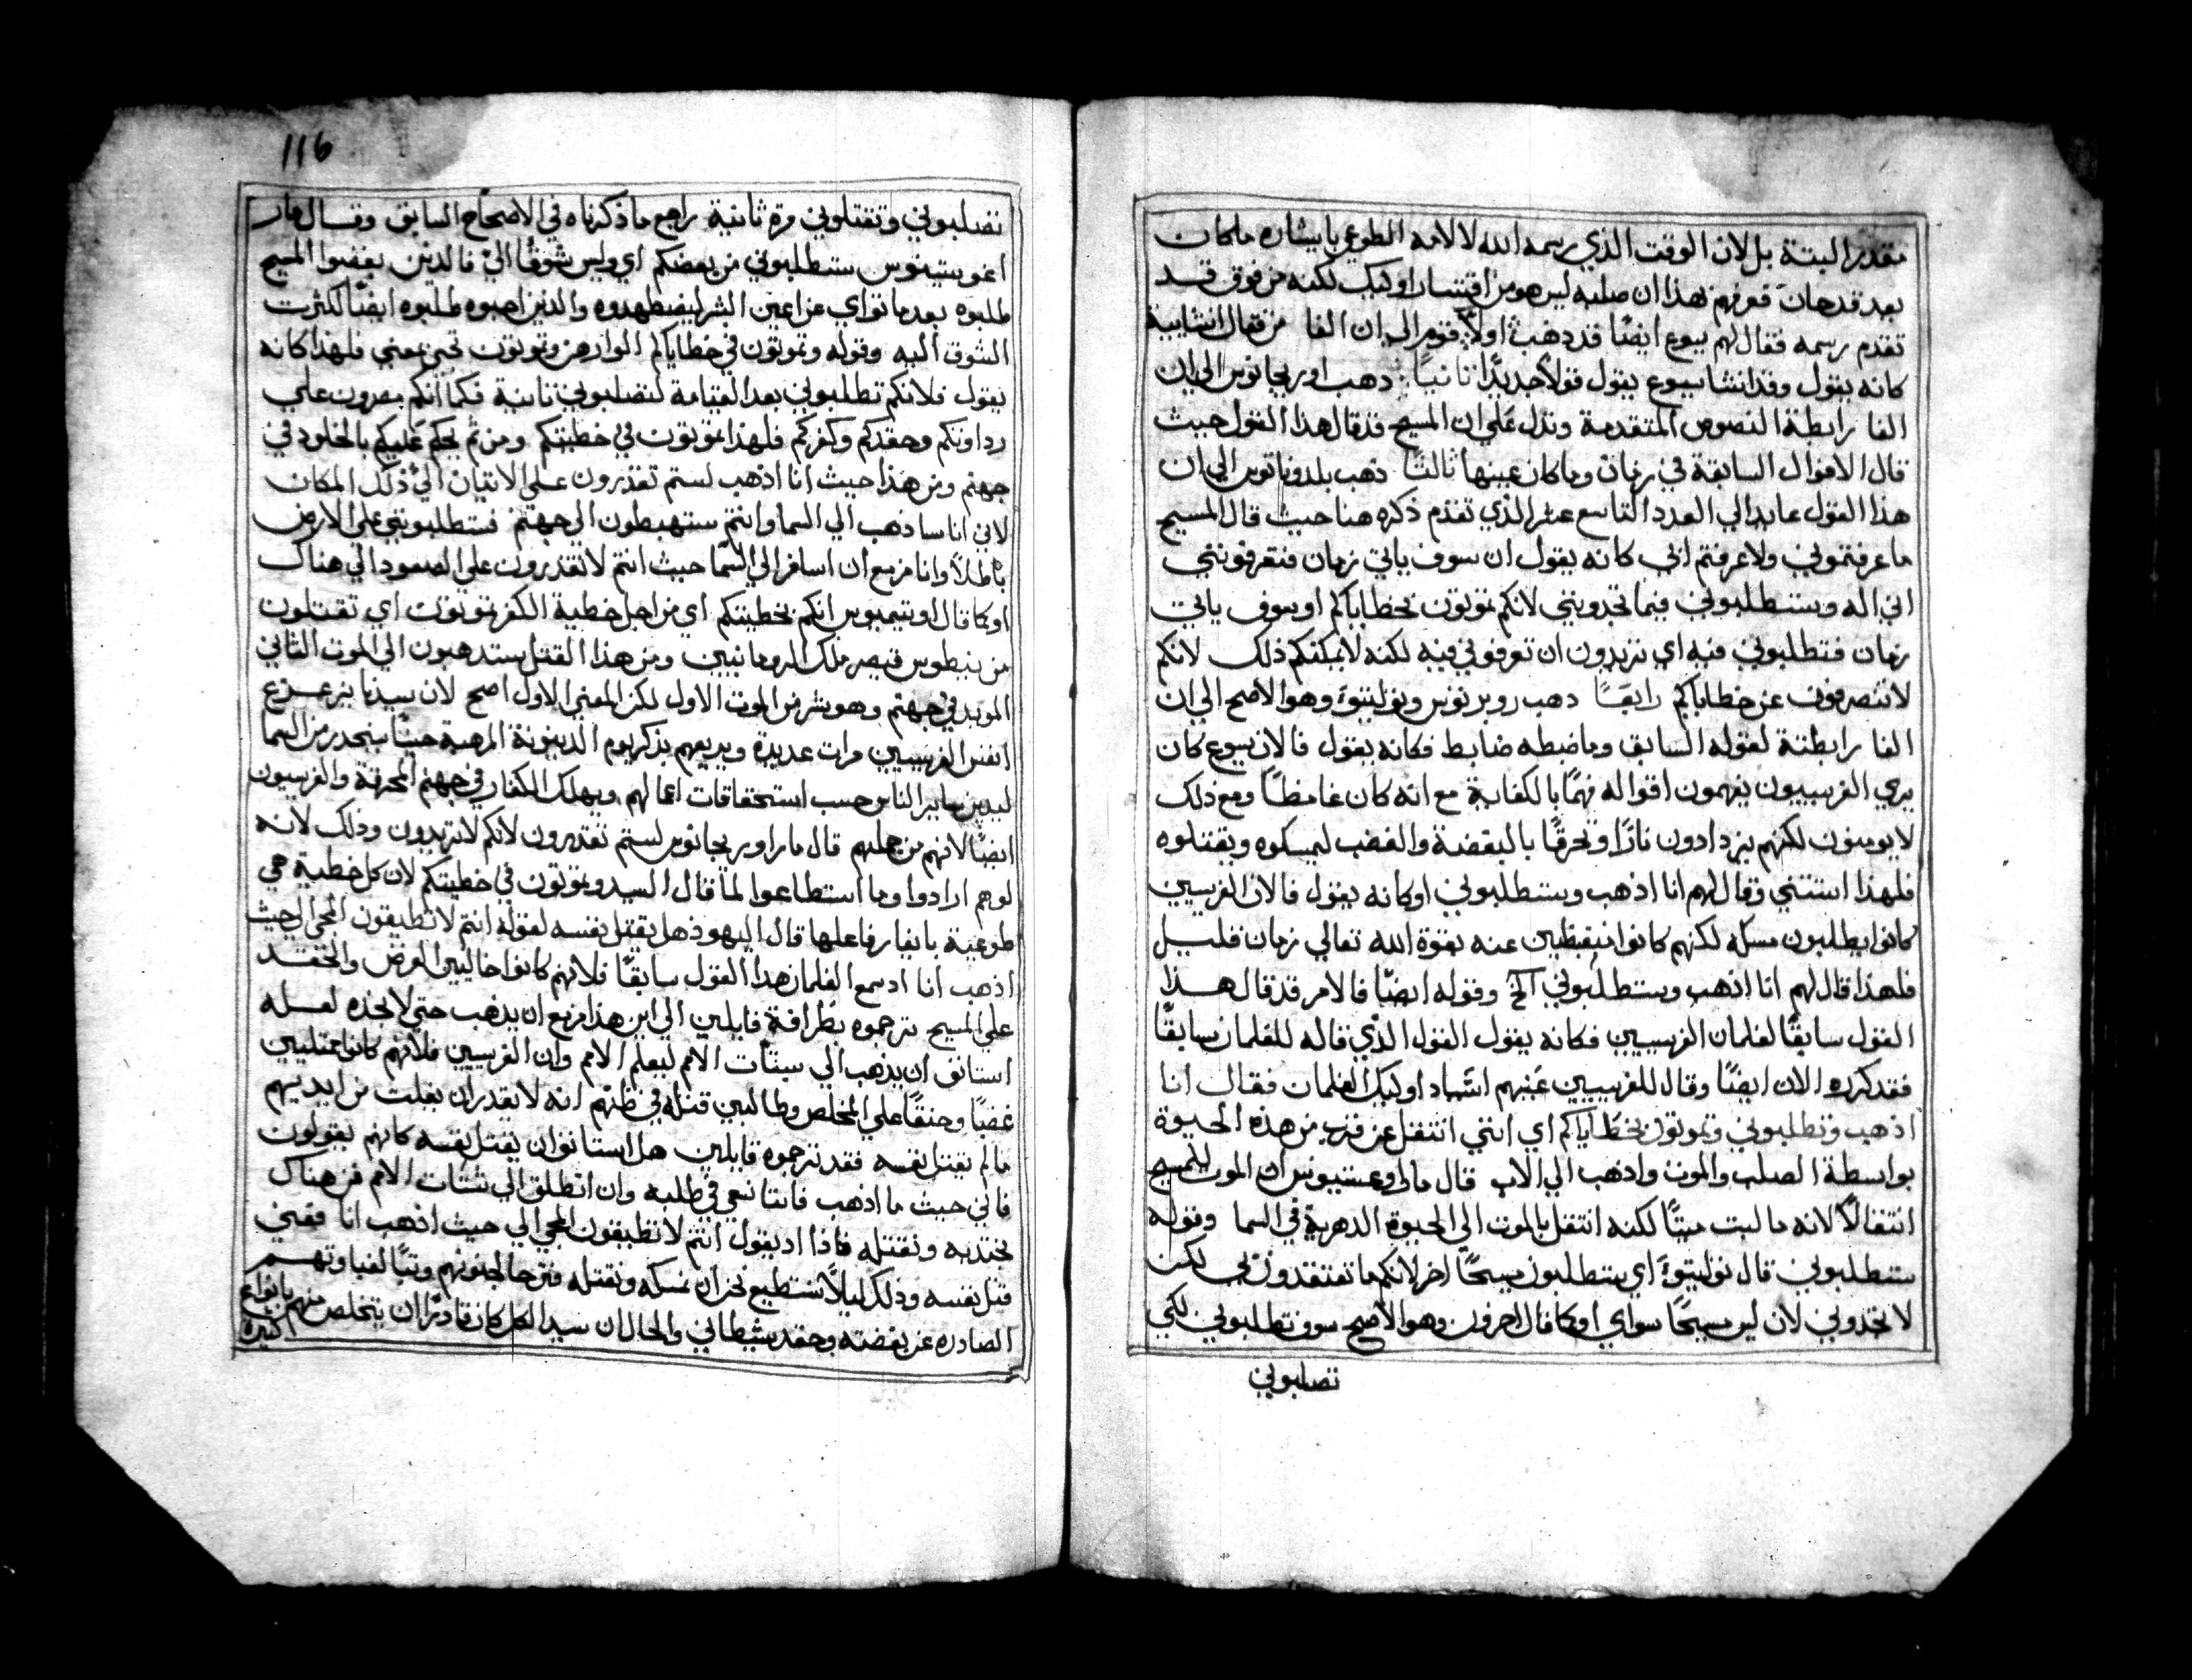 مقدر البتة بل لان الوقت الذي رسمه الله لالامه الطوعي بايشاره ماكان
بعد قد حان فعرفهم بهذا ان صلبه ليس هو من اقتسار اوليك لكنه من فوق قد
تقدم رسمه فقال لهم يسوع ايضًا قد ذهب اولاً قوم الي ان الفا من فقال انشايية
كانه يقول وقد انشا يسوع يقول قولاً جديدًا ثانيًا ذهب اوريجانوس الي ان
الفا رابطة النصوص المتقدمة وتدل علي ان المسيح قد قال هذا القول حيث
قال الاقوال السابقة في زمان ومكان عينها ثالثًا ذهب بلدوناتوس الي ان
هذا القول عايد الي العدد التاسع عشر الذي تقدم ذكره هنا حيث قال المسيح
ما عرفتموني ولا عرفتم ابي كانه يقول ان سوف ياتي زمان فتعرفونني
اني اله وستطلبوني فيما تجدونني لانكم تموتون بخطاياكم او سوف ياتي
زمان فتطلبوني فيه اي تريدون ان تعرفوني فيه لكنه لا يمكنكم ذلك لانكم
لا تنصرفون عن خطاياكم رابعًا ذهب روبرتوس وتوليتوَ وهو الاصح الي ان
الفا رابطتة لقوله السابق وما ضبطه ضابط فكانه يقول فالان يسوع كان
يري الفريسيون يفهمون اقواله فهمًا بالكفاية مع انه كان غامظًا ومع ذلك
لا يومنون لكنهم يزدادون نارًا وتحرقًا بالبغضة والغضب ليمسكوه ويقتلوه
فلهذا استثني وقال لهم انا اذهب وستطلبوني او كانه يقول فالان الفريسيين
كانوا يطلبون مسكه لكنهم كانوا منقبظين عنه بقوة الله تعالي زمان قليل
فلهذا قال لهم انا اذهب وستطلبوني الخ وقوله ايضًا فالامر قد قال هذا
القول سابقًا لغلمان الفريسيين فكانه يقول القول الذي قاله للغلمان سابقًا
فقد كرره الان ايضًا وقال للفريسيين عينهم اسياد اوليك الغلمان فقال انا
اذهب وتطلبوني وتموتون بخطاياكم اي انني انتقل عن قرب من هذه الحيوة
بواسطة الصلب والموت واذهب الي الاب قال مار اوغستيوس ان الموت للمسيح
انتقالاً لانه ما لبث ميتًا لكنه انتقل بالموت الي الحيوة الدهرية في السما وقوله
ستطلبوني قال توليتوَ اي ستطلبون مسيحًا اخر لانكم ما تعتقدون بي لكن
لا تجدوني لان ليس مسيحًا سواي او كما قال اخرون وهو الاصح سوف تطلبوني لكي
تصلبوني
116
تصلبوني وتقتلوني مرة ثانية راجع ما ذكرناه في الاصحاح السابق وقال مار
اغوستينوس ستطلبوني من بعضكم اي وليس شوقًا الي فالدين يبغضوا المسيح
طلبوه بعد ما تواري عن اعين البشر ليضطهدوه والذين احبوه طلبوه ايضًا لكثرت
الشوق اليه وقوله وتموتون في خطاياكم الواو هن وتموتون تجي بمعني فلهذا كانه
يقول فلانكم تطلبوني بعد القيامة لتصلبوني ثانية فكما انكم مصرون علي
رداوتكم وحقدكم وكفركم فلهذا تموتون في خطيتكم ومن ثم يحكم عليكم بالخلود في
جهنم ومن هذا حيث انا اذهب لستم تقدرون علي الاتيان الي ذلك المكان
لاني انا ساذهب الي السما وانتم ستهبطون الي جهنم فستطلبونني علي الارض
باطلاً وانا مزمع ان اسافر الي السما حيث انتم لا تقدرون علي الصعود الي هناك
او كما قال اوتيميوس انكم بخطيتكم اي من اجل خطية الكفر تموتون اي تقتلون
من تيطوس قيصر ملك الرومانيين ومن هذا القتل ستدهبون الي الموت الثاني
الموبد في جهنم وهو شر من الموت الاول لكن المعني الاول اصح لان سيدنا يزعزع
انفس الفريسيين مرات عديدة ويريعهم بذكر يوم الدينونة المرهبة حينما ينحدر من السما
ليدين ساير الناس حسب استحقاقات اعمالهم ويهلك الكفار في جهنم المحرقة والفريسيون
ايضًا لانهم من جملتهم قال مار اوريجانوس لستم تقدرون لانكم لا تريدون وذلك لانه
لو هم ارادوا وما استطاعوا لما قال السيد وتموتون في خطيتكم لان كل خطية هي
طوعية بايثار فاعلها قال اليهود هل يقتل نفسه لقوله انتم لا تطيقون المجي الي حيث
اذهب انا اد سمع الغلمان هدا القول سابقًا فلانهم كانوا خاليين الغرض والحقد
علي المسيح ترجموه بظرافة قايلين الي اين هذا مزمع ان يذهب حتي لا نجده لعله
استانق ان يذهب الي شتات الامم ليعلم الامم وان الفريسيين فلانهم كانوا ممتليين
غضبًا وحنقًا علي المخلص وطالبين قتله في ظنهم انه لا يقدر ان يفلت من ايديهم
ما لم يقتل نفسه فقد ترجموه قايلين هل استانق ان يقتل نفسه كانهم يقولون
فالي حيث ما اذهب فاننا نسعي في طلبه وان انطلق الي شتات الامم فمن هناك
نجتدبه ونقتله فاذا اد يقول انتم لا تطيقون المجي الي حيث اذهب انا فيعني
قتل نفسه وذلك ليلاً نستطيع نحن ان نمسكه ونقتله فترحا لجنونهم وتبًا لغباوتهم
الصادره عن بغضته وحقد شيطاني والحال ان سيد الكل كان قادرًا ان يتخلص منهم بانواع
كثيرة